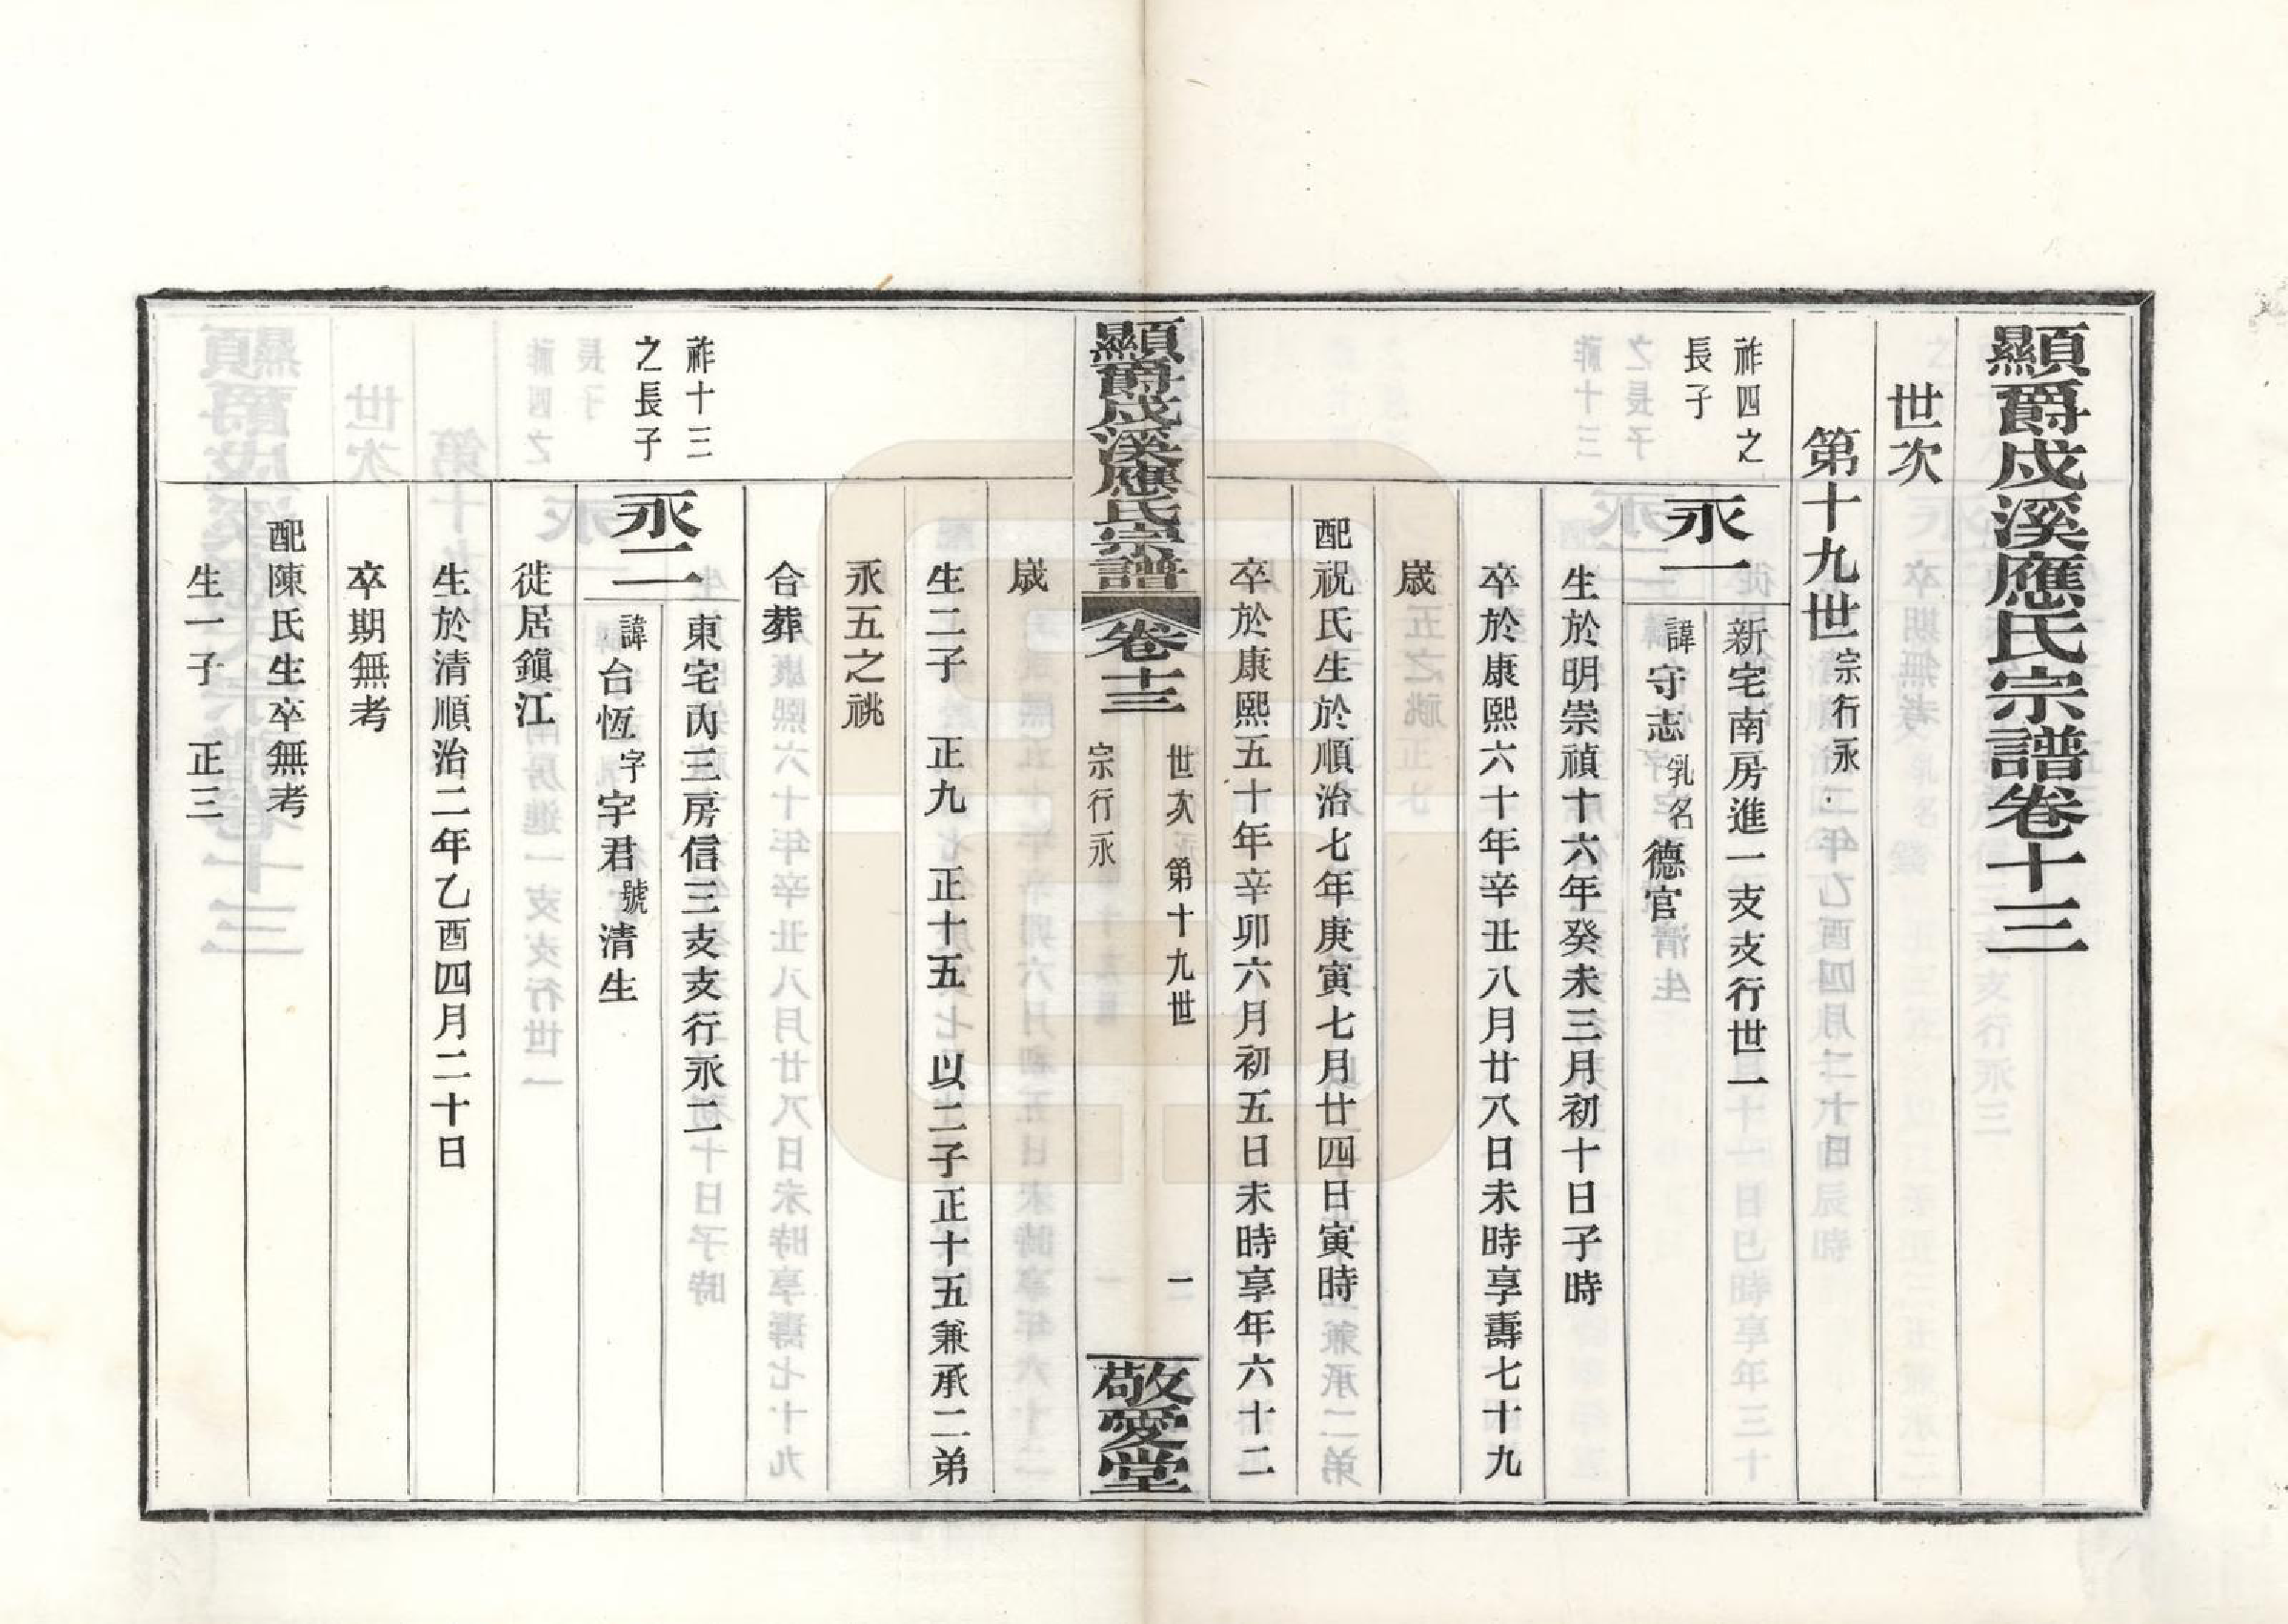 顯爵戍溪應氏宗譜卷十三
世次
第十九世 宗行永
祚四之
長子
永一
新宅南房進一支支行世一
諱守志 乳名德官
生於明崇禎十六年癸未三月初十日子時
卒於康熙六十年辛丑八月廿八日未時享壽七十九
歲
配祝氏生於順治七年庚寅七月廿四日寅時
卒於康熙五十年辛卯六月初五日未時享年六十二
顯爵戍溪應氏宗譜 卷十三
世次 第十九世 二
宗行永
敬愛堂
歲
生二子 正九 正十五 以二子正十五兼承二弟
永五之祧
合葬
祚十三
之長子
永二
東宅內三房信三支支行永二
諱台恆 字宇君 號清生
徙居鎭江
生於清順治二年乙酉四月二十日
卒期無考
配陳氏生卒無考
生一子 正三